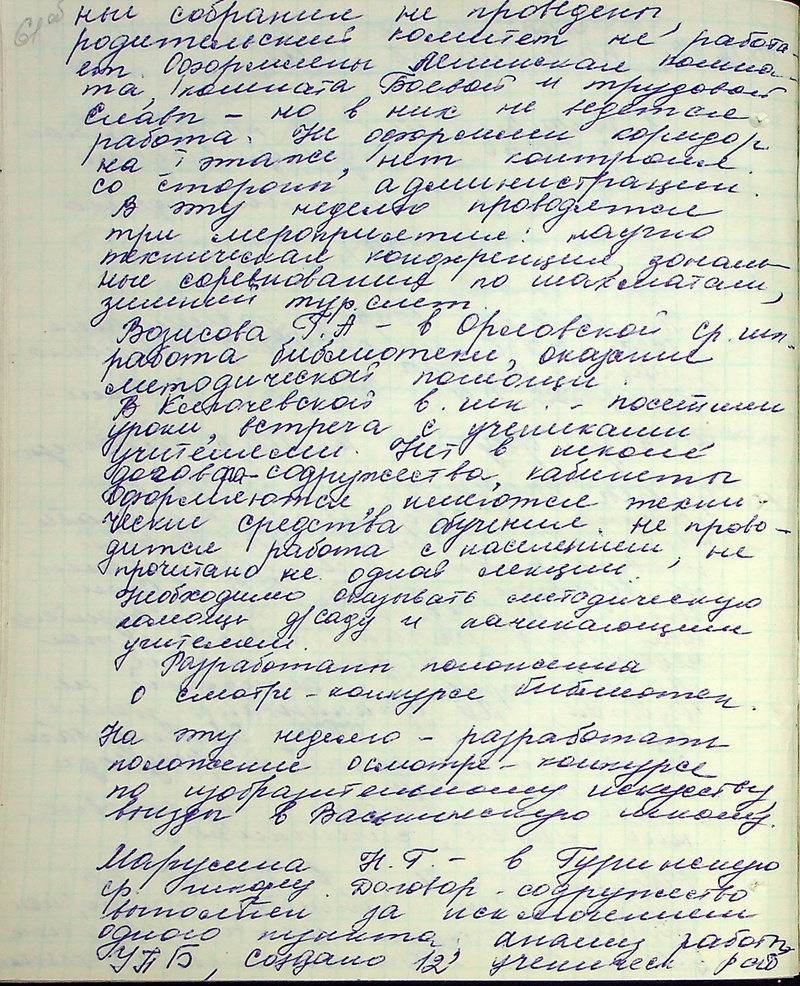 61 об
ные собрания не проведены,
родительский комитет не работа-
ет. Оформлены Ленинская комна-
та, комната Боевой и трудовой
Славы – но в них не ведется
работа. Не оформлен коридор
на I этаже, нет контроля
со стороны администрации.
В эту неделю проводятся
три мероприятия: научно
техническая конференция, зональ-
ные соревнования по шахматам,
зимний турслет.
Возисова Г.А – в Орловской ср. шк.
работа библиотеки, оказание
методической помощи.
В Клочевской в. шк. – посетили
уроки, встреча с учениками
учителями. Нет в школе
договора-содружества, кабинеты
оформляются, имеются техни-
ческие средства обучения. не прово-
дится работа с населением, не
прочитано не одной лекции.
Необходимо оказывать методическую
помощь д/саду и начинающим
учителям.
Разработаны положения
о смотре-конкурсе библиотек.
На эту неделю – разработать
положение о смотре-конкурсе
по изобразительному искуству,
выезды в школу.
Марусина Н.Г. – в Туринскую
ср. школу. Договор-содружество
выполнен за исключением
одного пункта. анализ работы
УПБ, создано 12 ученическ. раб